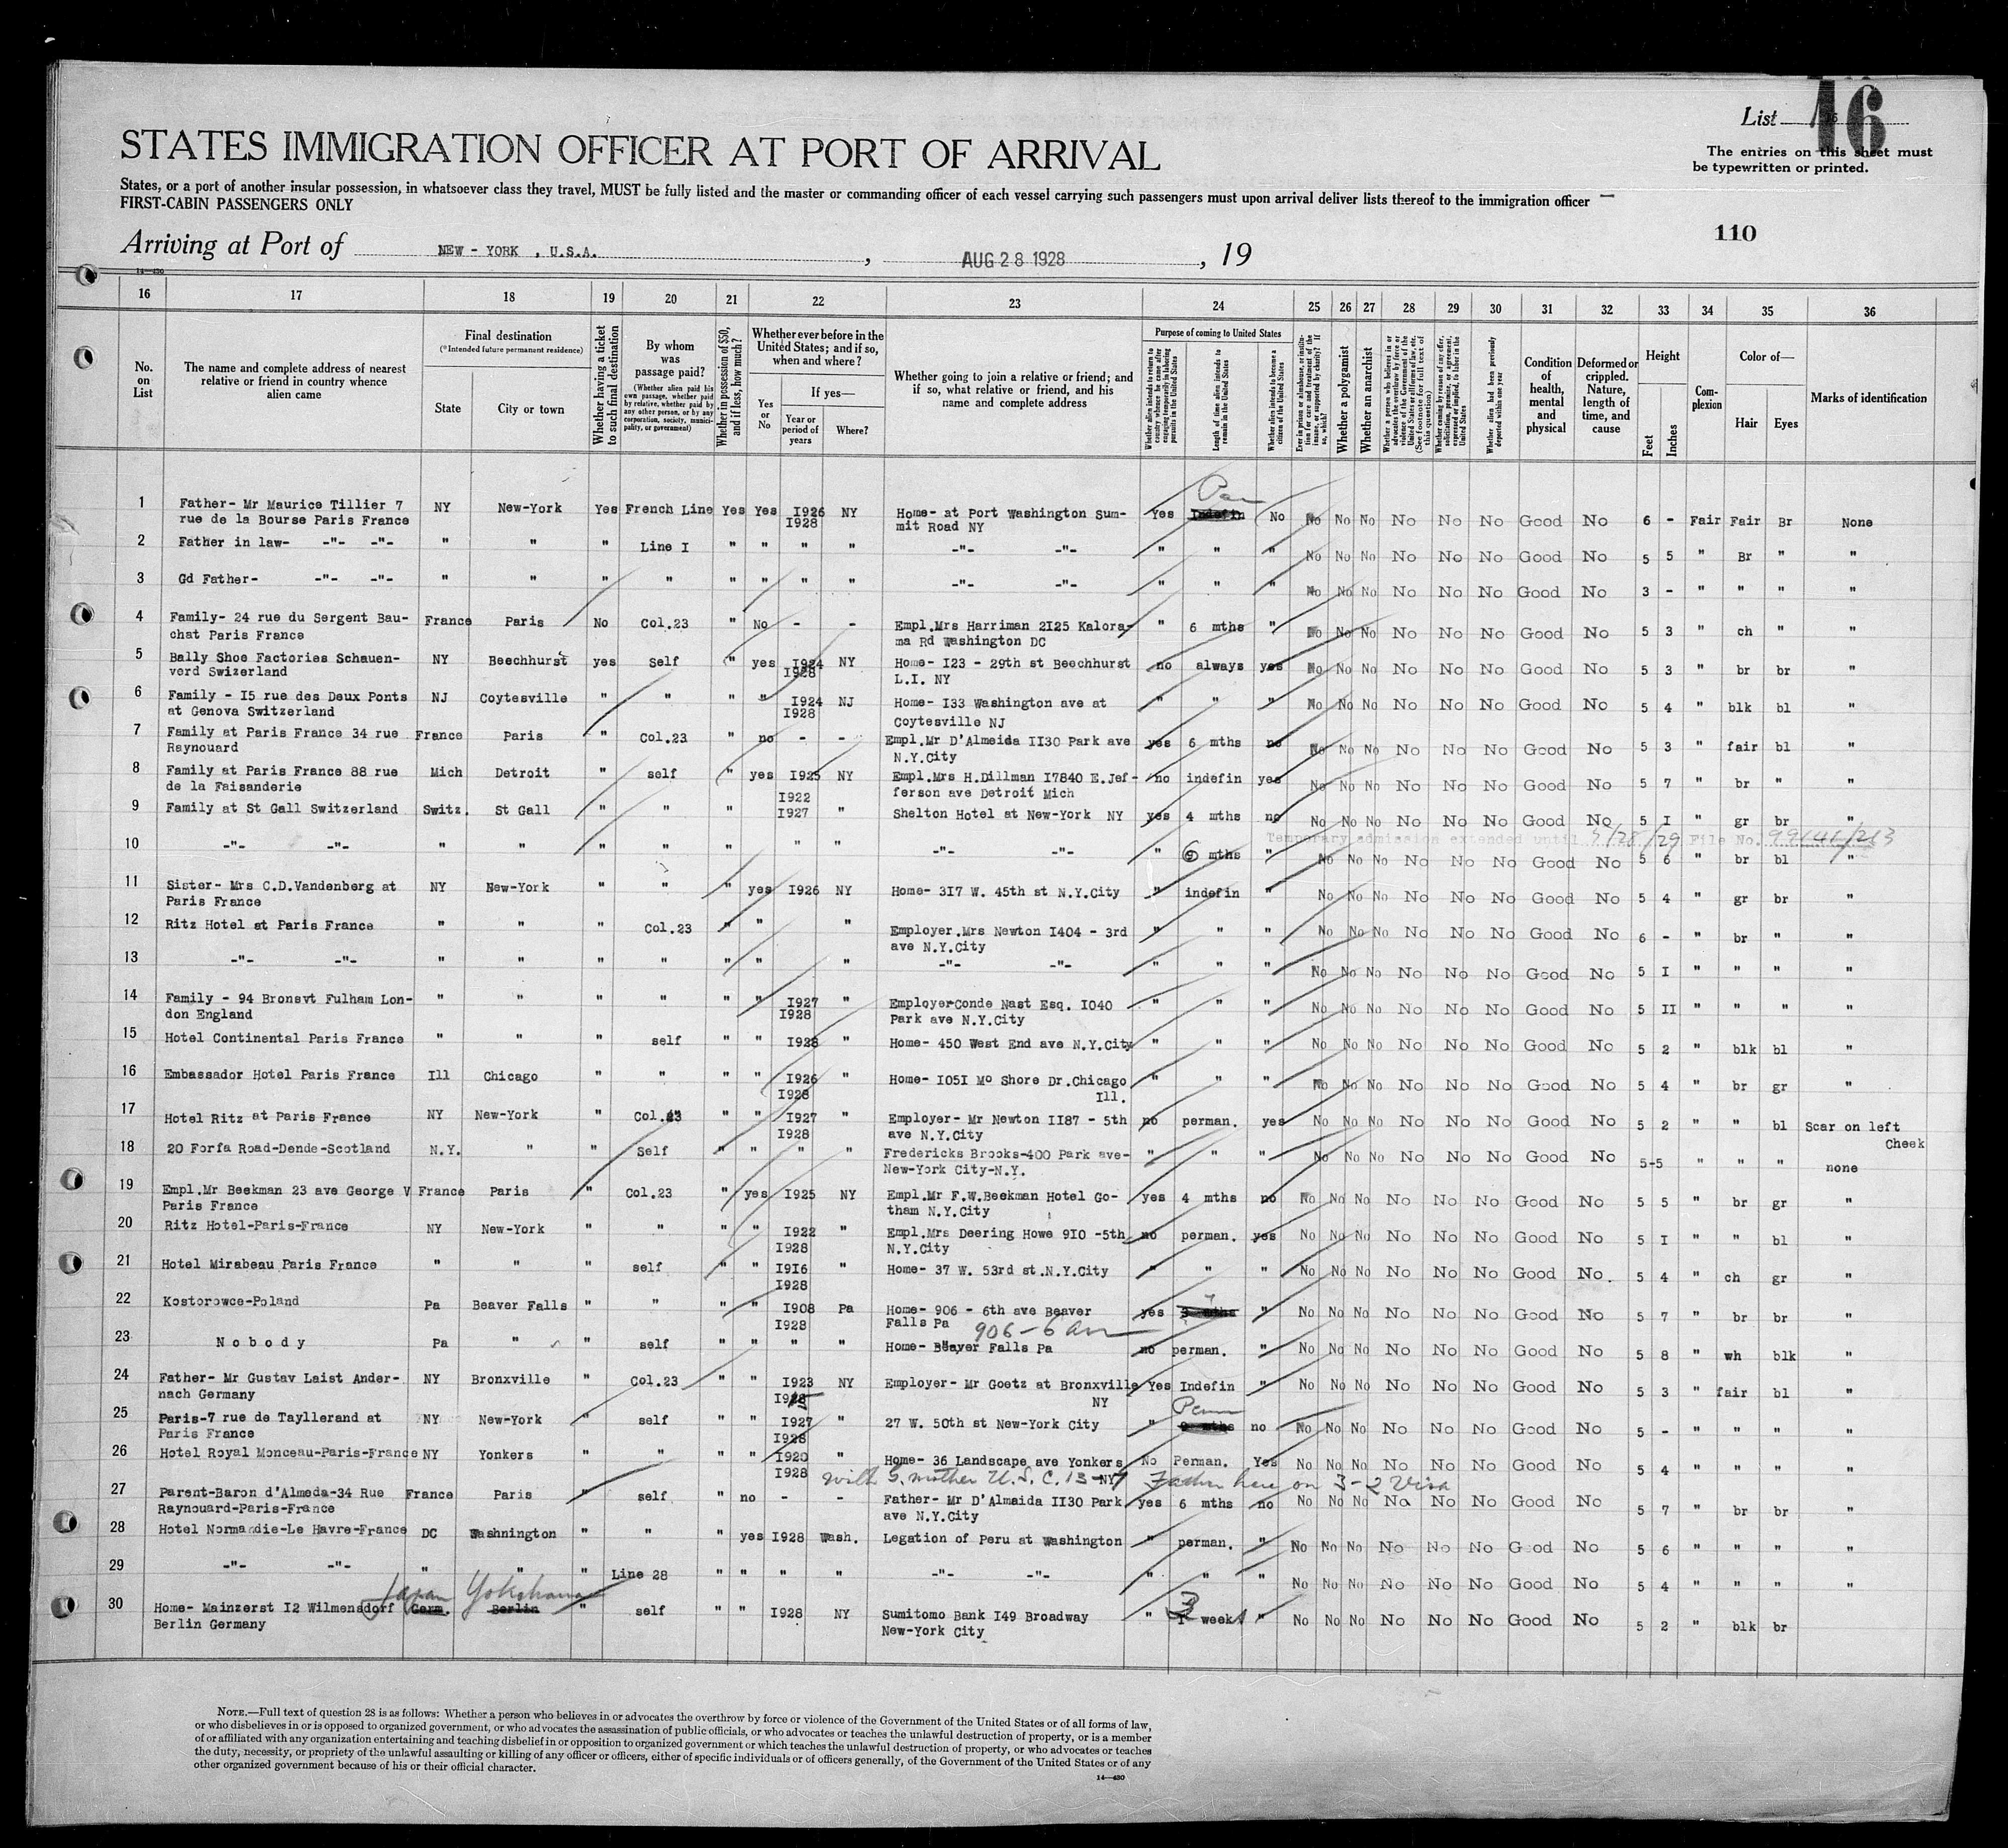 List 16
16
The entries on this sheet must
be typewritten or printed.
STATES IMMIGRATION OFFICER AT PORT OF ARRIVAL
States, or a port of another insular possession, in whatsoever class they travel, MUST be fully listed and the master or commanding officer of each vessel carrying such passengers must upon arrival deliver lists thereof to the immigration officer
FIRST-CABIN PASSENGERS ONLY
110
Arriving at Port of NEW - YORK , U.S.A. , AUG 28 1928 , 19
14—430
16 17 18 19 20 21 22 23 24 25 26 27 28 29 30 31 32 33 34 35 36
No. on List
The name and complete address of nearest relative or friend in country whence alien came
Final destination
(*Intended future permanent residence)
State
City or town
Whether having a ticket to such final destination
By whom was passage paid?
(Whether alien paid his own passage, whether paid by relative, whether paid by any other person, or by any corporation, society, municipality, or government)
Whether in possession of $50, and if less, how much?
Whether ever before in the United States; and if so, when and where?
Yes or No
If yes—
Year or period of years
Where?
Whether going to join a relative or friend; and if so, what relative or friend, and his name and complete address
Purpose of coming to United States
Whether alien intends to return to country whence he came after engaging temporarily in laboring pursuits in the United States
Length of time alien intends to remain in the United States
Whether alien intends to become a citizen of the United States
Ever in prison or almshouse, or institution for care and treatment of the insane, or supported by charity? If so, which?
Whether a polygamist
Whether an anarchist
Whether a person who believes in or advocates the overthrow by force or violence of the Government of the United States or all forms of law, etc. (See footnote for full text of this question)
Whether coming by reason of any offer, solicitation, promise, or agreement, expressed or implied, to labor in the United States
Whether alien had been previously deported within one year
Condition of health, mental and physical
Deformed or crippled. Nature, length of time, and cause
Height
Feet
Inches
Complexion
Color of—
Hair
Eyes
Marks of identification
1 Father- Mr Maurice Tillier 7 NY New-York Yes French Line Yes Yes I926 NY Home- at Port Washington Sum- Yes Indefin No No No No No No No Good No 6 - Fair Fair Br None
rue de la Bourse Paris France I928 mit Road NY
2 Father in law- -"- -"- " " " Line I " " " " -"- -"- " " " No No No No No No Good No 5 5 " Br " "
3 Gd Father- -"- -"- " " " " " " " " -"- -"- " " " No No No No No No Good No 3 - " " " "
4 Family- 24 rue du Sergent Bau- France Paris No Col.23 " No - - Empl.Mrs Harriman 2I25 Kalora- " 6 mths " No No No No No No Good No 5 3 " ch " "
chat Paris France ma Rd Washington DC
5 Bally Shoe Factories Schauen- NY Beechhurst yes Self " yes I924 NY Home- I23 - 29th st Beechhurst no always yes No No No No No No Good No 5 3 " br br "
verd Swizerland I928 L.I. NY
6 Family - I5 rue des Deux Ponts NJ Coytesville " " " " I924 NJ Home- I33 Washington ave at " " " No No No No No No Good No 5 4 " blk bl "
at Genova Switzerland I928 Coytesville NJ
7 Family at Paris France 34 rue France Paris " Col.23 " no - - Empl.Mr D'Almeida II30 Park ave yes 6 mths no No No No No No No Good No 5 3 " fair bl "
Raynouard N.Y.City
8 Family at Paris France 88 rue Mich Detroit " self " yes I925 NY Empl.Mrs H.Dillman I7840 E.Jef- no indefin yes No No No No No No Good No 5 7 " br " "
de la Faisanderie ferson ave Detroit Mich
9 Family at St Gall Switzerland Switz. St Gall " " " I922 I927 " Shelton Hotel at New-York NY yes 4 mths no No No No No No No Good No 5 I " gr br "
Temporary admission extended until File No. 99141/213
10 -"- -"- " " " " " " -"- -"- " 6 mths " No No No No No No Good No 5 6 " br bl "
11 Sister- Mrs C.D.Vandenberg at NY New-York " " " yes I926 NY Home- 3I7 W. 45th st N.Y.City " indefin " No No No No No No Good No 5 4 " gr br "
Paris France
12 Ritz Hotel at Paris France " " " Col.23 " " " Employer.Mrs Newton I404 - 3rd " " " No No No No No No Good No 6 - " br " "
ave N.Y.City
13 -"- -"- " " " " " " " -"- -"- " " " No No No No No No Good No 5 I " " " "
14 Family - 94 Bronsvt Fulham Lon- " " " " " " I927 " Employer-Conde Nast Esq. I040 " " " No No No No No No Good No 5 II " " "
don England I928 Park ave N.Y.City
15 Hotel Continental Paris France " " " self " " I928 " Home- 450 West End ave N.Y.City " " " No No No No No No Good No 5 2 " blk bl "
16 Embassador Hotel Paris France Ill Chicago " " " " I926 " Home- I05I Mo Shore Dr.Chicago " " " No No No No No No Good No 5 4 " br gr "
I928 Ill.
17 Hotel Ritz at Paris France NY New-York " Col.23 " " I927 " Employer- Mr Newton II87 - 5th no perman. yes No No No No No No Good No 5 2 " " bl Scar on left
I928 ave N.Y.City Cheek
18 20 Forfa Road-Dende-Scotland N.Y. " " Self " " " " Fredericks Brooks-400 Park ave- " " " No No No No No No Good No 5-5 " " " none
New-York City-N.Y.
19 Empl.Mr Beekman 23 ave George V France Paris " Col.23 " yes I925 NY Empl.Mr F.W.Beekman Hotel Go- yes 4 mths no No No No No No No Good No 5 5 " br gr "
Paris France tham N.Y.City
20 Ritz Hotel-Paris-France NY New-York " " " " I922 " Empl.Mrs Deering Howe 9I0 -5th no perman. yes No No No No No No Good No 5 I " " bl "
I928 N.Y.City
21 Hotel Mirabeau Paris France " " " self " " I9I6 " Home- 37 W. 53rd st.N.Y.City " " " No No No No No No Good No. 5 4 " ch gr "
I928
22 Kostorowce-Poland Pa Beaver Falls " " " " I908 Pa Home- 906 - 6th ave Beaver yes 3 mths " No No No No No No Good No 5 7 " br br "
I928 Falls Pa 906 - 6 av
23 Nobody Pa " " self " " " " Home- Beaver Falls Pa no perman. " No No No No No No Good No 5 8 " wh blk "
24 Father- Mr Gustav Laist Ander- NY Bronxville " Col.23 " " I923 NY Employer- Mr Goetz at Bronxville Yes Indefin " No No No No No No Good No 5 3 " fair bl "
nach Germany NY
25 Paris-7 rue de Tayllerand at NY New-York " self " " I927 " 27 W. 50th st New-York City " Perm mths no No No No No No No Good No 5 - " " " "
Paris France I928
26 Hotel Royal Monceau-Paris-France NY Yonkers " " " " I920 " Home- 36 Landscape ave Yonkers No Perman. Yes No No No No No No Good No 5 4 " " " "
I928 NY
with G. mother U.S.C. 13- Father here on 3-2 Visa
27 Parent-Baron d'Almeda-34 Rue France Paris " self " no - - Father- Mr D'Almaida II30 Park yes 6 mths no No No No No No No Good No 5 7 " br br "
Raynouard-Paris-France ave N.Y.City
28 Hotel Normandie-Le Havre-France DC Washnington " " " yes I928 Wash. Legation of Peru at Washington " perman. " No No No No No No Good No 5 6 " " " "
29 -"- -"- " " " Line 28 " " " " -"- -"- " " " No No No No No No Good No 5 4 " " " "
Japan Yokohama
30 Home- Mainzerst I2 Wilmensdorf Germ. Berlin " self " " I928 NY Sumitomo Bank I49 Broadway " 3 weeks " No No No No No No Good No 5 2 " blk br
Berlin Germany New-York City
NOTE.—Full text of question 28 is as follows: Whether a person who believes in or advocates the overthrow by force or violence of the Government of the United States or of all forms of law,
or who disbelieves in or is opposed to organized government, or who advocates the assassination of public officials, or who advocates or teaches the unlawful destruction of property, or is a member
of or affiliated with any organization entertaining and teaching disbelief in or opposition to organized government or which teaches the unlawful destruction of property, or who advocates or teaches
the duty, necessity, or propriety of the unlawful assaulting or killing of any officer or officers, either of specific individuals or of officers generally, of the Government of the United States or of any
other organized government because of his or their official character.
14—430